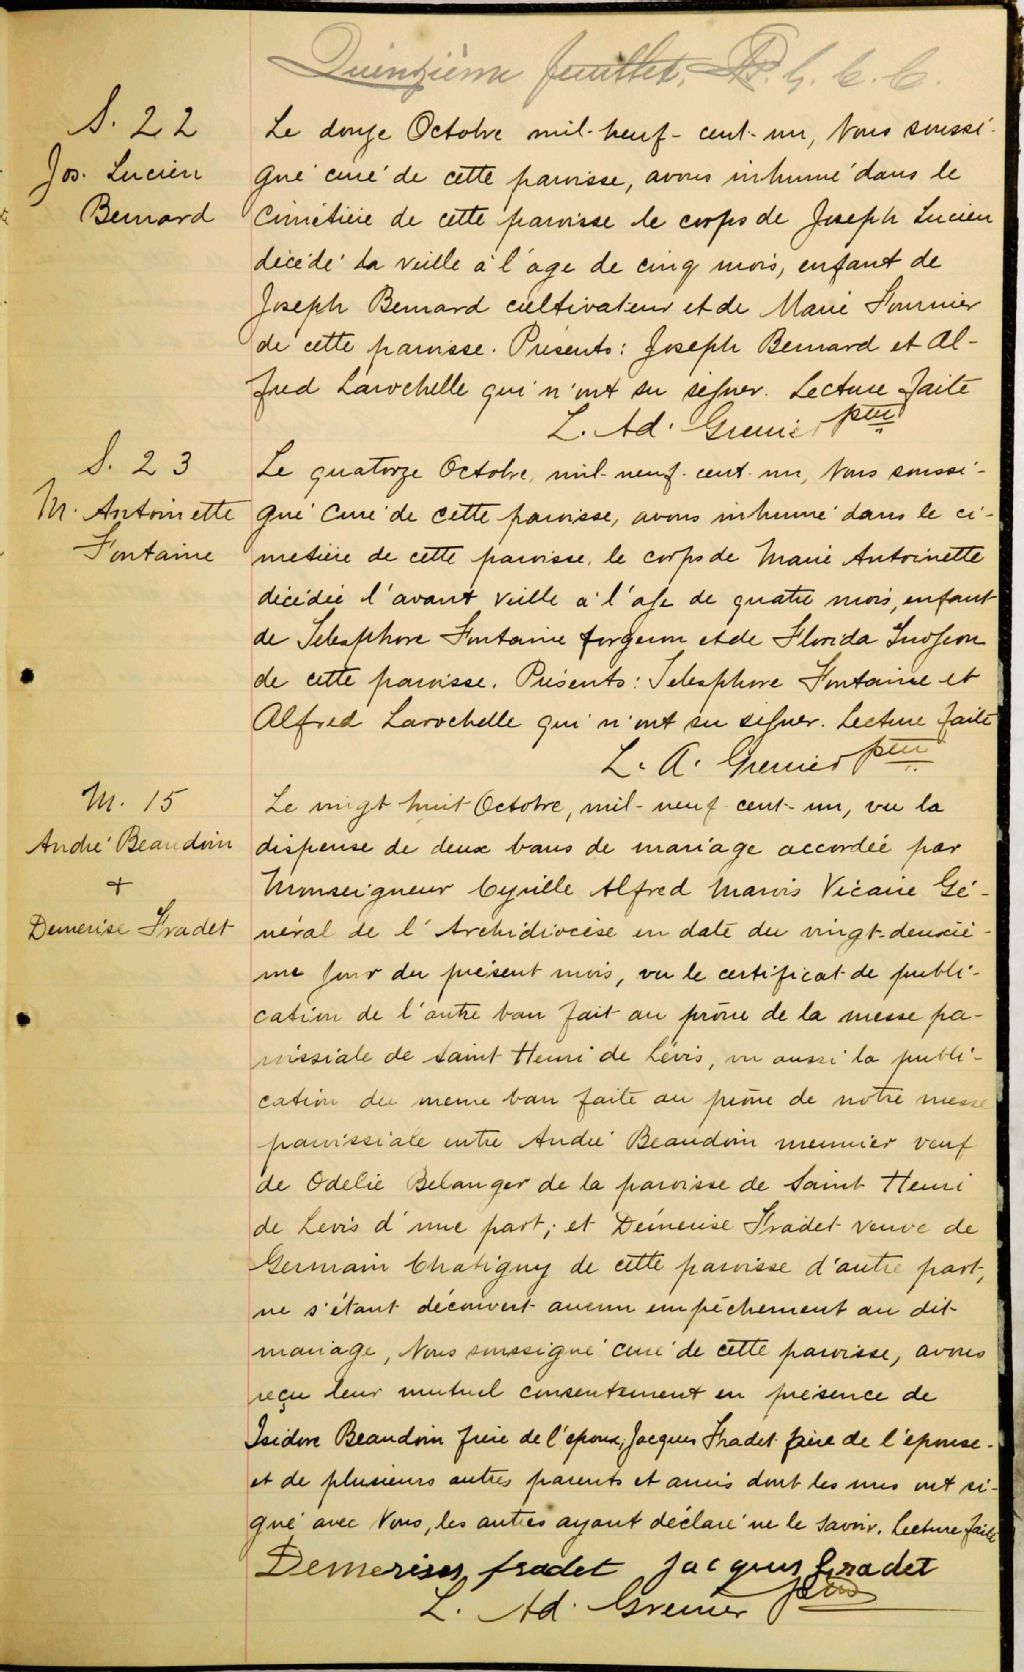 Quinzième feuillet, P. G. C. C.
S. 22
Jos. Lucien
Bernard
Le douze Octobre mil-neuf-cent-un, Nous soussi-
gné curé de cette paroisse, avons inhumé dans le
cimetière de cette paroisse le corps de Joseph Lucien
décédé la veille à l'age de cinq mois, enfant de
Joseph Bernard cultivateur et de Marie Fournier
de cette paroisse. Présents: Joseph Bernard et Al-
fred Larochelle qui n'ont su signer. Lecture faite
L. Ad. Grenier ptre
S. 23
M. Antoinette
Fontaine
Le quatorze Octobre, mil-neuf-cent-un, Nous soussi-
gné curé de cette paroisse, avons inhumé dans le ci-
metière de cette paroisse, le corps de Marie Antoinette
décédée l'avant veille à l'age de quatre mois, enfant
de Telesphore Fontaine forgeron et de Florida
de cette paroisse. Présents: Telesphore Fontaine et
Alfred Larochelle qui n'ont su signer. Lecture faite
L. A. Grenier ptre
M. 15
André Beaudoin
+
Demerise Fradet
Le vingt huit Octobre, mil-neuf cent-un, vu la
dispense de deux bans de mariage accordée par
Monseigneur Cyrille Alfred Marois Vicaire Gé-
néral de l'Archidiocèse en date du vingt-deuxiè-
me jour du présent mois, vu le certificat de publi-
cation de l'autre ban fait au prône de la messe pa-
roissiale de Saint Henri de Lévis, vu aussi la publi-
cation du meme ban faite au prône de notre messe
paroissiale entre André Beaudoin meunier veuf
de Odelie Belanger de la paroisse de Saint Henri
de Levis d'une part; et Démerise Fradet veuve de
Germain Chatigny de cette paroisse d'autre part,
ne s'étant découvert aucun empêchement au dit
mariage, Nous soussigné curé de cette paroisse, avons
reçu leur mutuel consentement en présence de
Isidore Beaudoin frère de l'époux, Jacques Fradet père de l'épouse
et de plusieurs autres parents et amis dont les uns ont si-
gné avec Nous, les autres ayant déclaré ne le savoir. Lecture faite
Demerises fradet Jacques Fradet
L. Ad. Grenier ptre